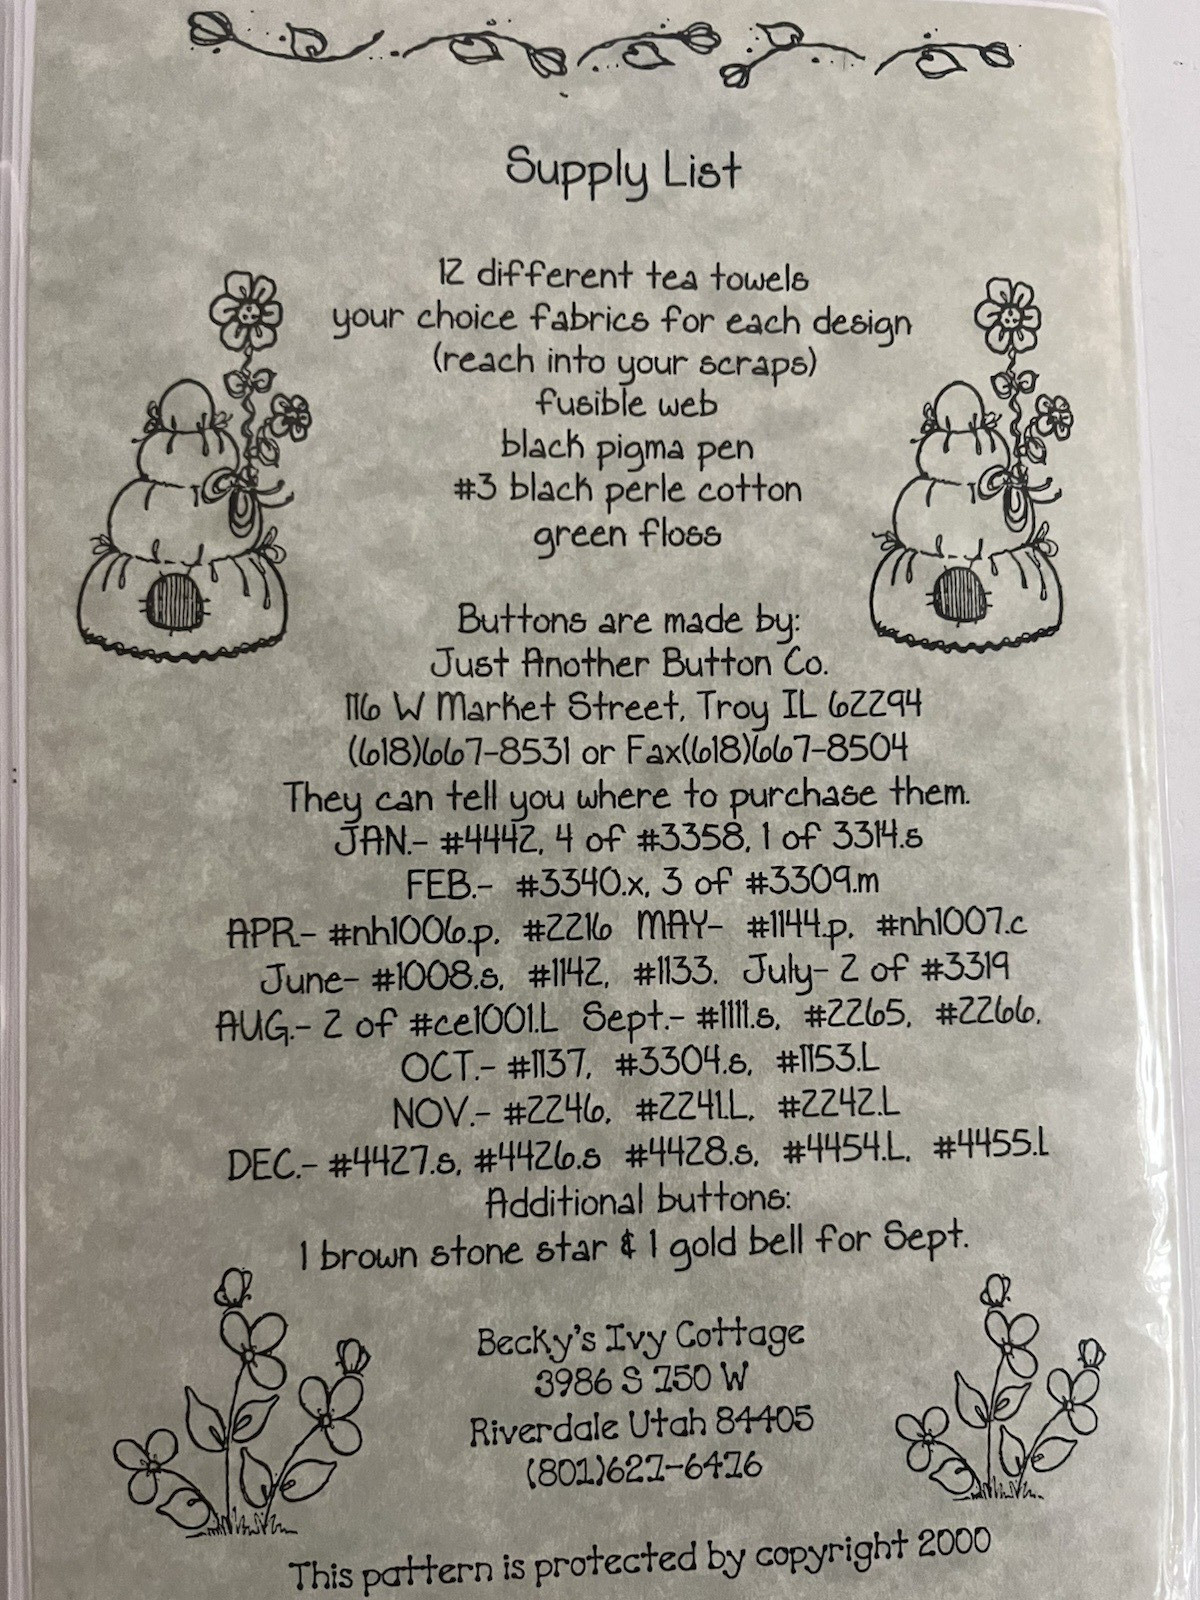 Supply List
12 different tea towels
your choice fabrics for each design
(reach into your scraps)
fusible web
black pigma pen
#3 black perle cotton
green floss
Buttons are made by:
Just Another Button Co.
116 W Market Street, Troy IL 62294
(618)667-8531 or Fax(618)667-8504
They can tell you where to purchase them.
JAN.- #4442, 4 of #3358, 1 of 3314.s
FEB.- #3340.x, 3 of #3309.m
APR.- #nh1006.p, #2216 MAY- #1144.p, #nh1007.c
June- #1008.s, #1142, #1133. July- 2 of #3319
AUG.- 2 of #ce1001.L Sept.- #1111.s, #2265, #2266,
OCT.- #1137, #3304.s, #1153.L
NOV.- #2246, #2241.L, #2242.L
DEC.- #4427.s, #4426.s #4428.s, #4454.L, #4455.l
Additional buttons:
1 brown stone star & 1 gold bell for Sept.
Becky's Ivy Cottage
3986 S 750 W
Riverdale Utah 84405
(801)627-6476
This pattern is protected by copyright 2000